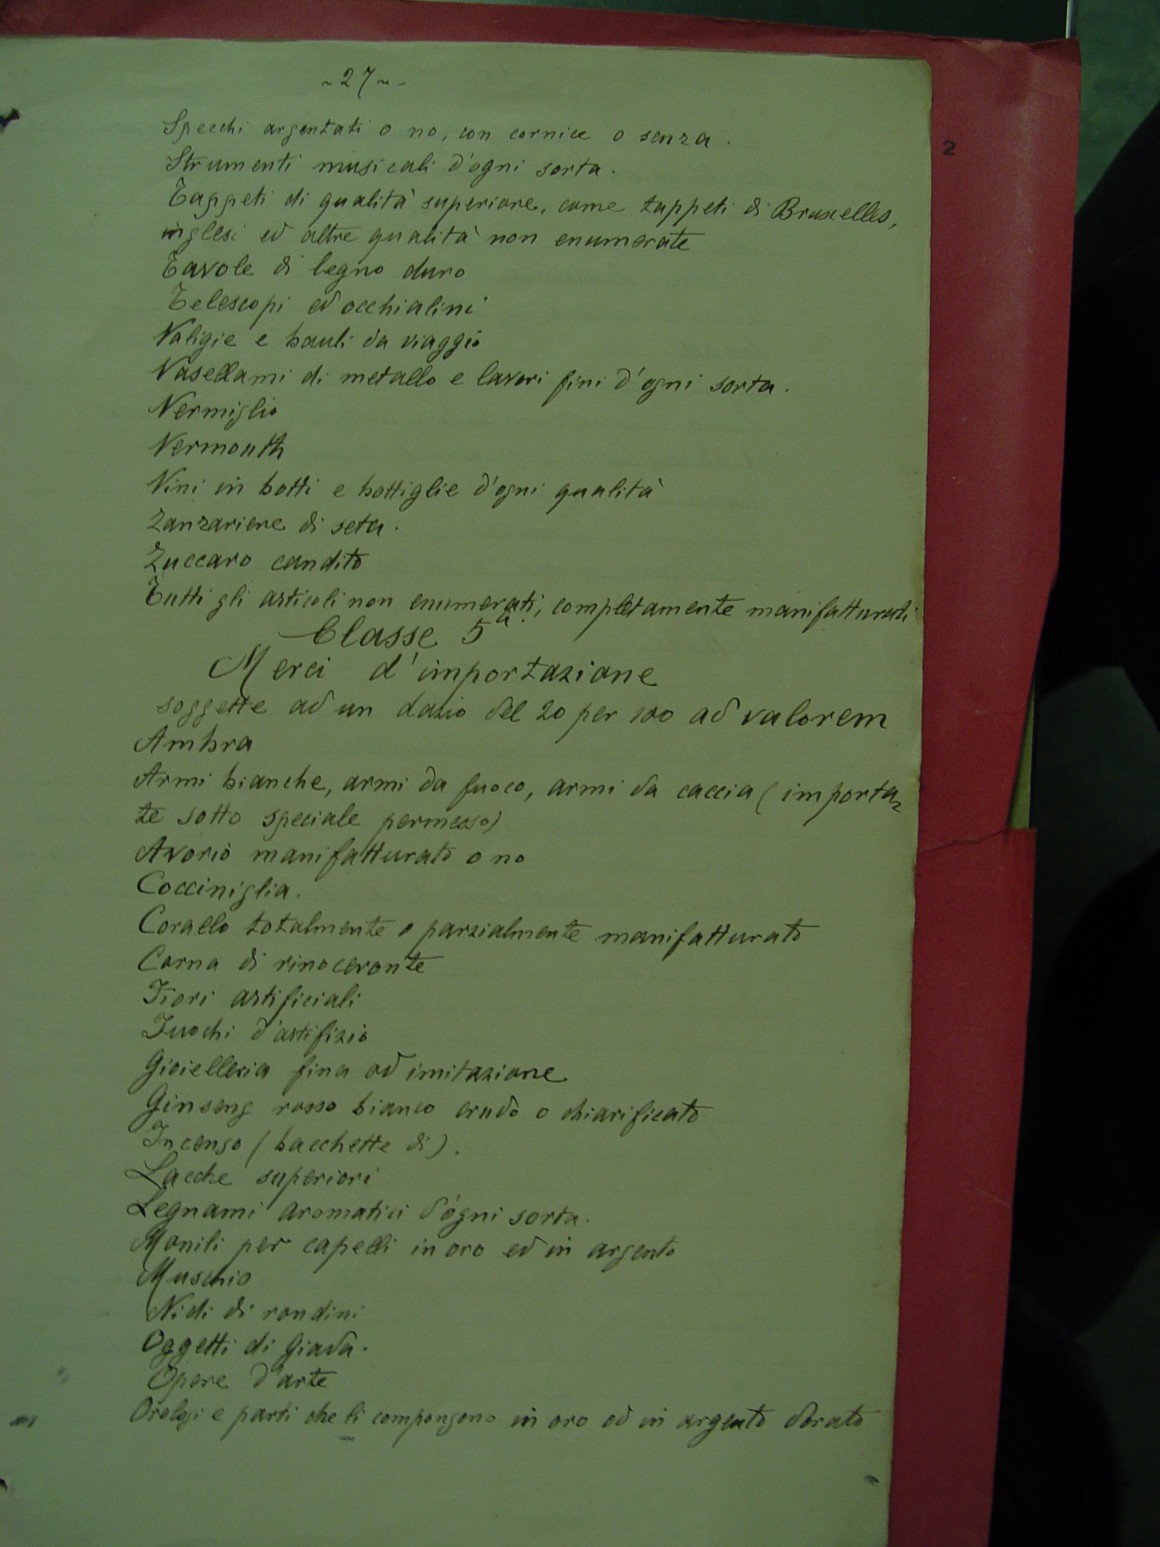 ~27~-
Specchi argentati o no, con cornice o senza.
Strumenti musicali d'ogni sorta.
Tappeti di qualità superiore, come tappeti di Bruxelles,
inglesi ed altre qualità non enumerate
Tavole di legno duro
Telescopi ed occhialini
Valigie e bauli da viaggio
Vasellami di metallo e lavori fini d'ogni sorta.
Vermiglio
Vermouth
Vini in botti e bottiglie d'ogni qualità
Zanzariere di seta.
Zuccaro candito
Tutti gli articoli non enumerati, completamente manifatturati
Classe 5ª.
Merci d'importazione
soggette ad un dazio del 20 per 100 ad valorem
Ambra
Armi bianche, armi da fuoco, armi da caccia (importa-
te sotto speciale permesso)
Avorio manifatturato o no
Cocciniglia.
Corallo totalmente o parzialmente manifatturato
Corna di rinoceronte
Fiori artificiali
Fuochi d'artifizio
Gioielleria fina od imitazione
Ginseng rosso bianco crudo o chiarificato
Incenso (bacchette di).
Lacche superiori
Legnami aromatici d'ogni sorta.
Monili per capelli in oro ed in argento
Muschio
Nidi di rondini
Oggetti di Giada.
Opere d'arte
Orologi e parti che li compongono in oro od in argento dorato
2